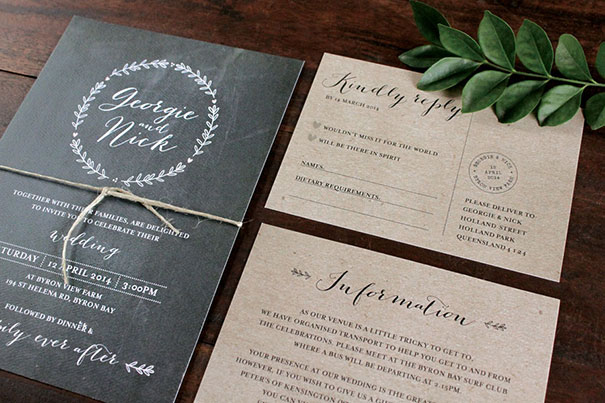 Georgie
and
Nick
TOGETHER WITH THEIR FAMILIES, ARE DELIGHTED
TO INVITE YOU TO CELEBRATE THEIR
wedding
SATURDAY 12 APRIL 2014 3:00PM
AT BYRON VIEW FARM
194 ST HELENA RD, BYRON BAY
FOLLOWED BY DINNER &
happily ever after
Kindly reply
BY 15 MARCH 2014
WOULDN'T MISS IT FOR THE WORLD
WILL BE THERE IN SPIRIT
NAMES
DIETARY REQUIREMENTS
GEORGIE & NICK
APRIL
2014
BYRON VIEW FARM
PLEASE DELIVER TO
GEORGIE & NICK
HOLLAND STREET
HOLLAND PARK
QUEENSLAND 4124
Information
AS OUR VENUE IS A LITTLE TRICKY TO GET TO,
WE HAVE ORGANISED TRANSPORT TO HELP YOU GET TO AND FROM
THE CELEBRATIONS. PLEASE MEET AT THE BYRON BAY SURF CLUB
WHERE A BUS WILL BE DEPARTING AT 2.15PM.
YOUR PRESENCE AT OUR WEDDING IS THE GREATEST
HOWEVER, IF YOU WISH TO GIVE US A GIFT
PETER'S OF KENSINGTON
YOU CAN